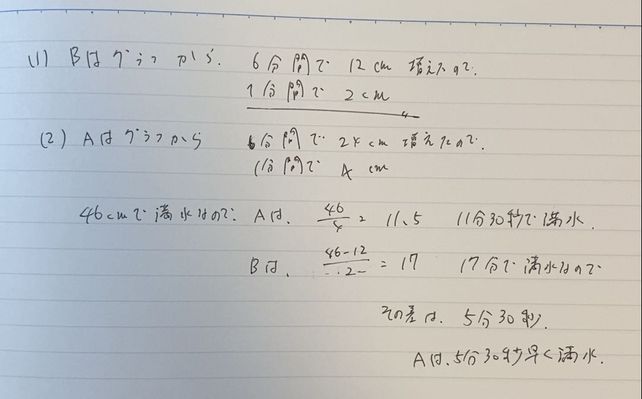 (1) Bはグラフから. 6分間で 12cm 増えたので.
1分間で 2cm
(2) Aはグラフから 6分間で 24cm 増えたので.
1分間で 4cm
46cmで満水なので. Aは. 46/4 = 11.5 11分30秒で満水.
Bは. 46-12/2 = 17 17分で満水なので
その差は. 5分30秒.
Aは.5分30秒早く満水.